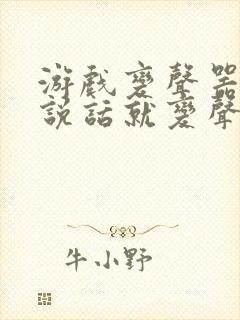 游戲變聲器
說話就變聲
牛小野